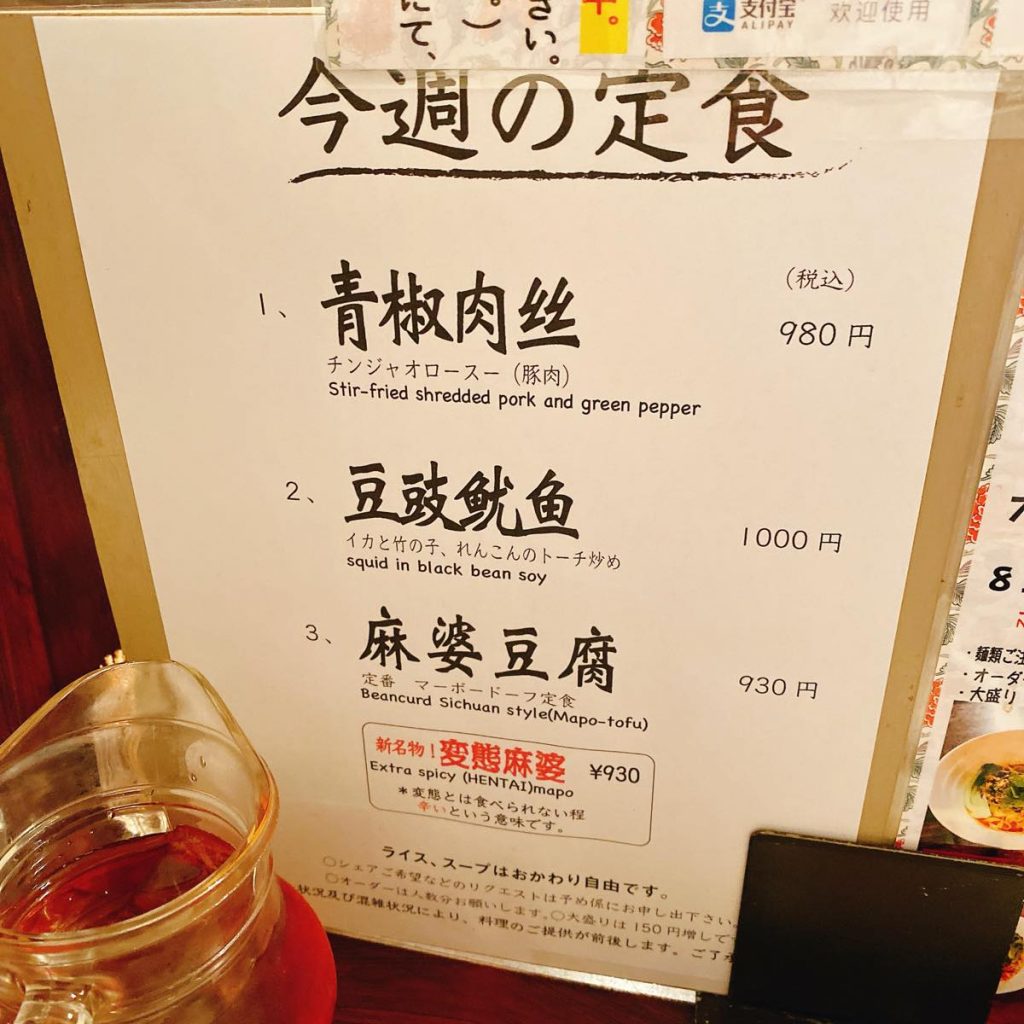 さい。
。）
にて、
支付宝
ALIPAY
欢迎使用
今週の定食
（税込）
1、青椒肉丝 980円
チンジャオロースー（豚肉）
Stir-fried shredded pork and green pepper
2、豆豉鱿鱼 1000円
イカと竹の子、れんこんのトーチ炒め
squid in black bean soy
3、麻婆豆腐 930円
定番 マーボードーフ定食
Beancurd Sichuan style(Mapo-tofu)
新名物！変態麻婆 ¥930
Extra spicy (HENTAI)mapo
＊変態とは食べられない程
辛いという意味です。
ライス、スープはおかわり自由です。
○シェアご希望などのリクエストは予め係にお申し出下さい。
○オーダーは人数分お願いします。○大盛りは150円増しで
状況及び混雑状況により、料理のご提供が前後します。ご了承
・麺類ご注
・オーダ
・大盛り